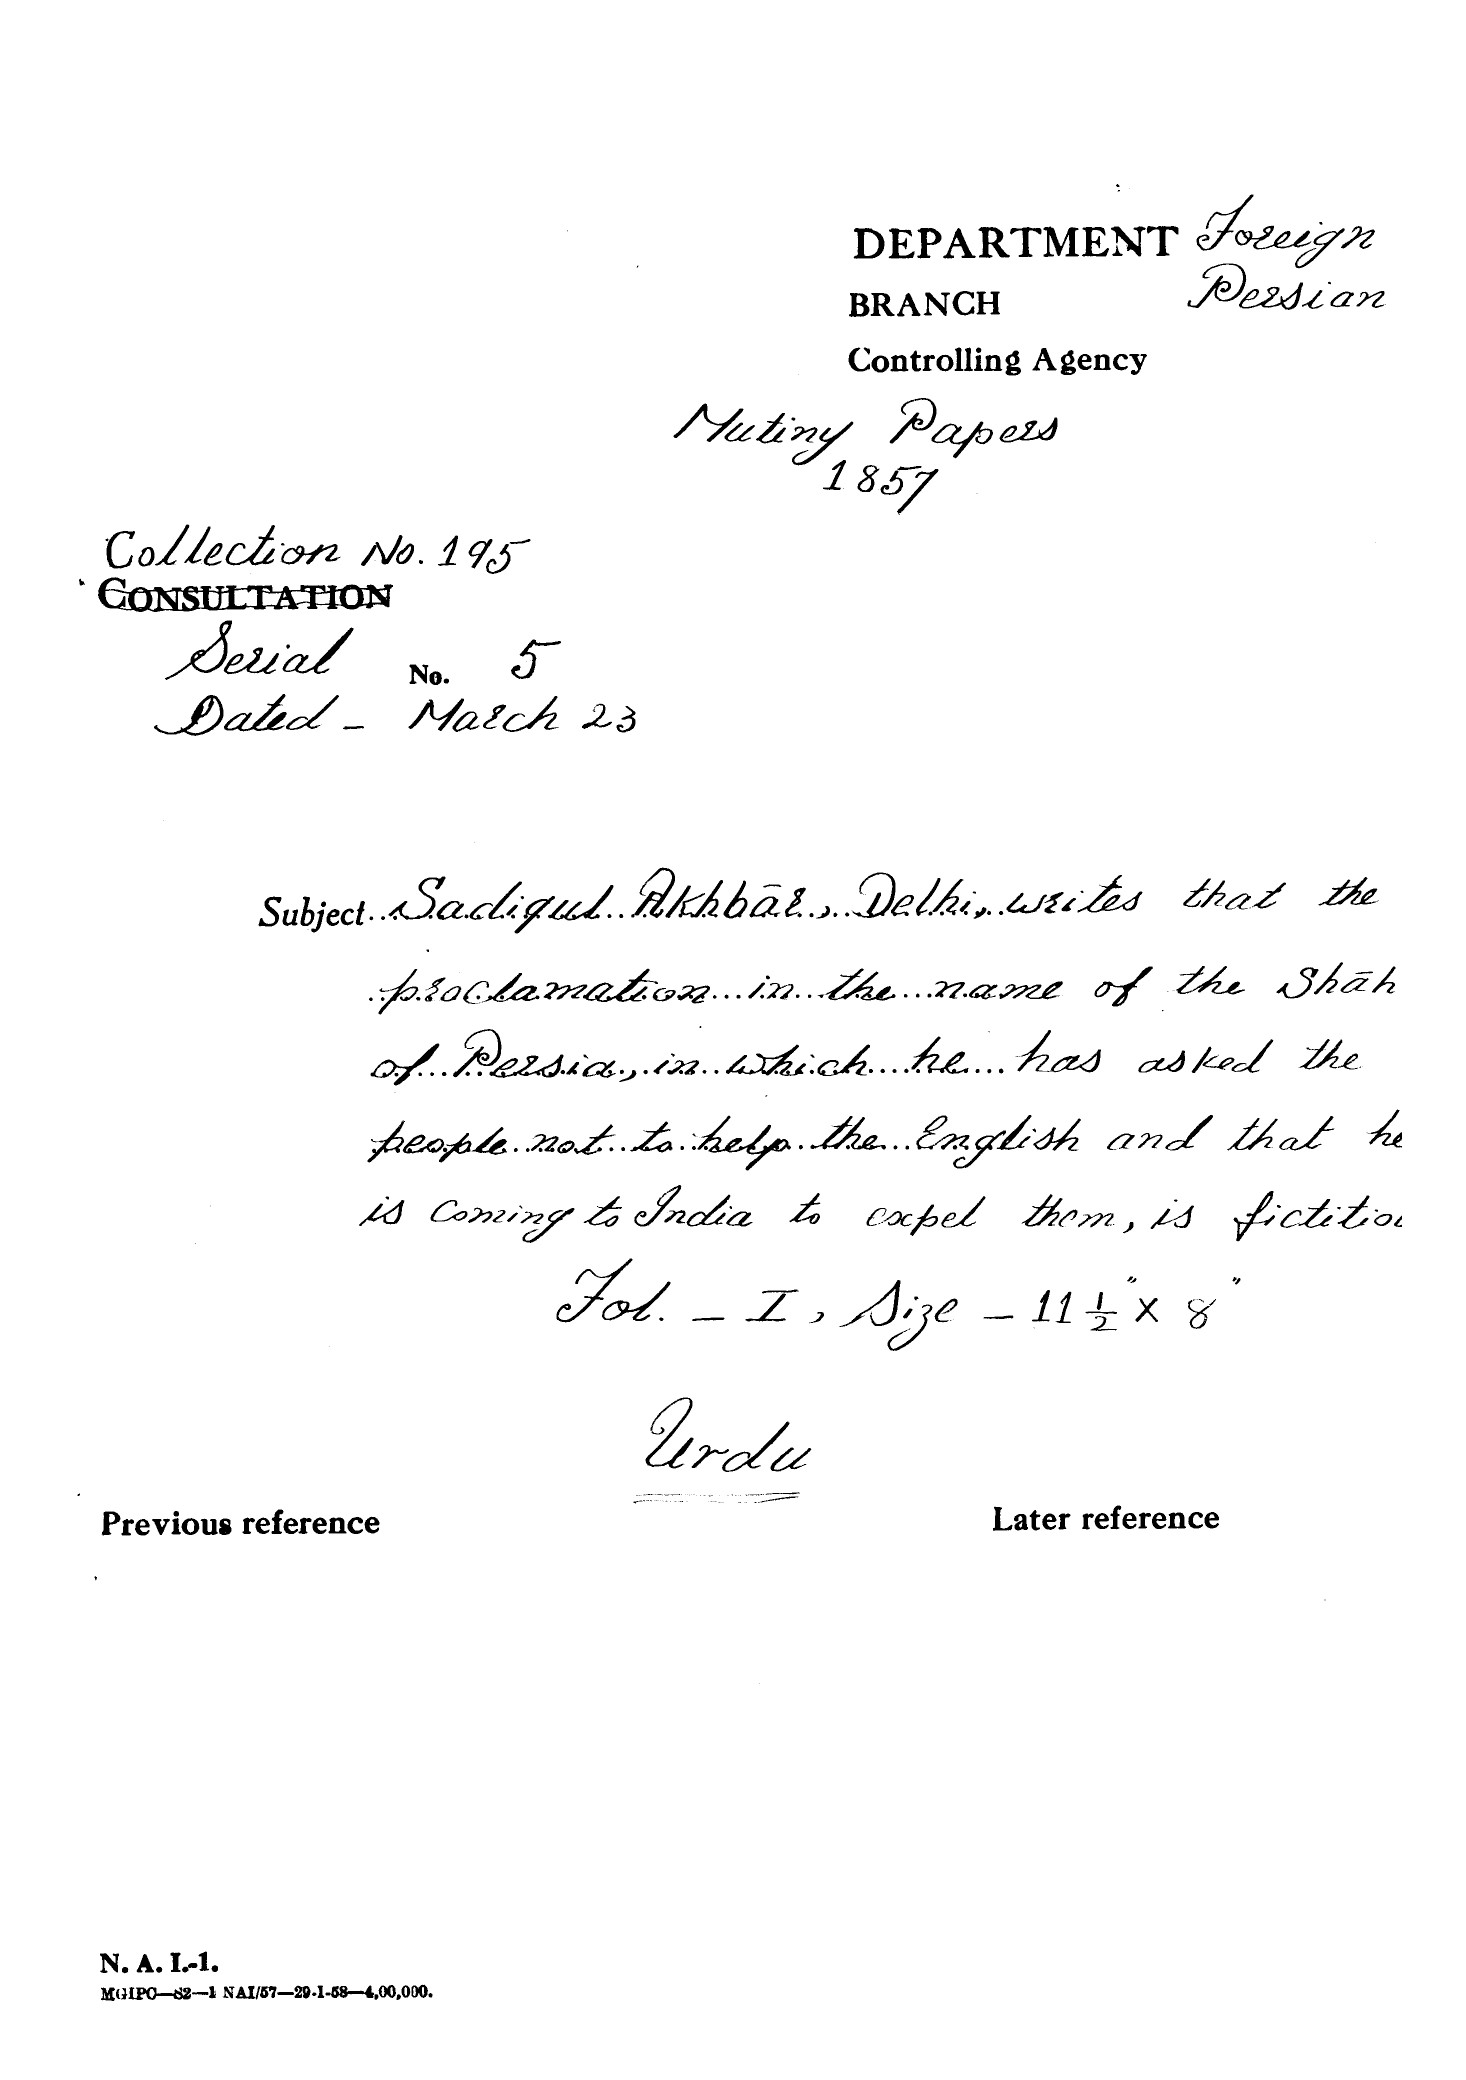 DEPARTMENT Foreign
BRANCH Persian
Controlling Agency
Mutiny Papers
1857
Collection No. 195
CONSULTATION
Serial No. 5
Dated - March 23
Subject Sadiqul Akhbār, Delhi, writes that the
proclamation in the name of the Shāh
of Persia, in which he has asked the
people not to help the English and that he
is coming to India to expel them, is fictitiou
Fol. - I, Size - 11 1/2" x 8"
Urdu
Previous reference Later reference
N. A. I.-1.
MGIPC—S2—1 NAI/57—29-1-58—4,00,000.